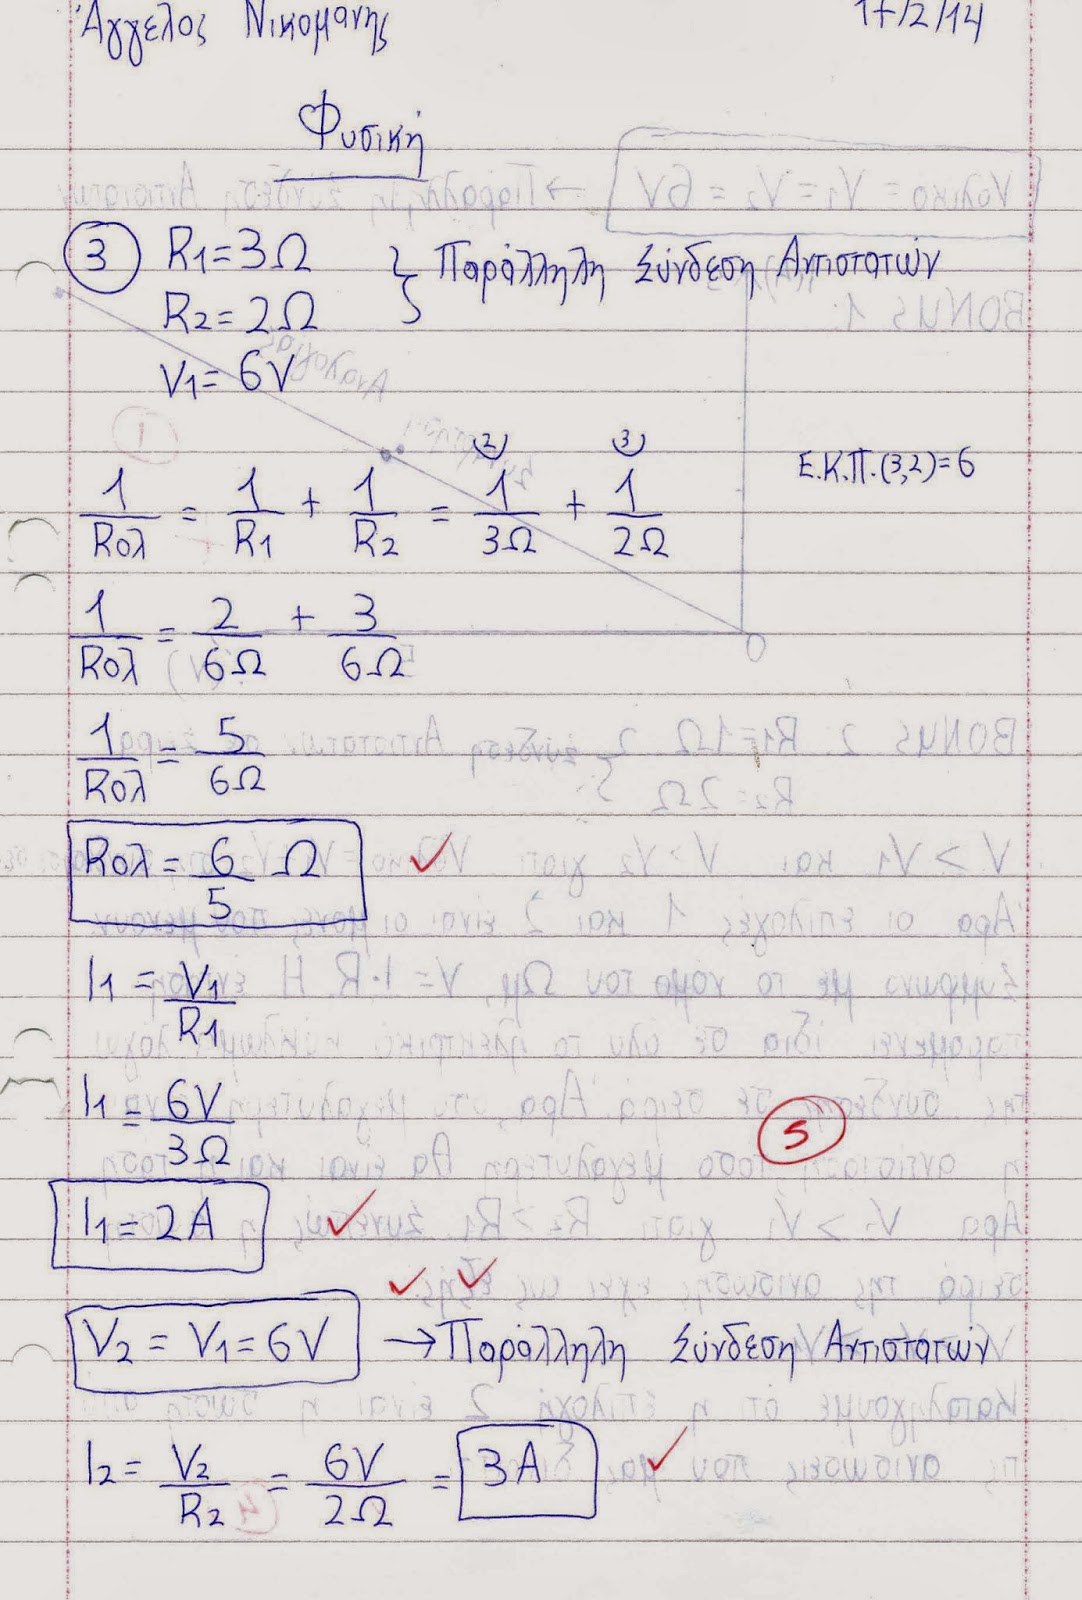 Άγγελος Νικομάνης 17/2/14
Φυσική
3 R1=3Ω } Παράλληλη Σύνδεση Αντιστατών
R2=2Ω
V1=6V
1/Rολ = 1/R1 + 1/R2 = (2) 1/3Ω + (3) 1/2Ω Ε.Κ.Π.(3,2)=6
1/Rολ = 2/6Ω + 3/6Ω
1/Rολ = 5/6Ω
Rολ = 6/5 Ω ✓
I1 = V1/R1
I1 = 6V/3Ω
5
I1=2A ✓
✓ ✓
V2 = V1=6V → Παράλληλη Σύνδεση Αντιστατών
I2= V2/R2 = 6V/2Ω = 3A ✓